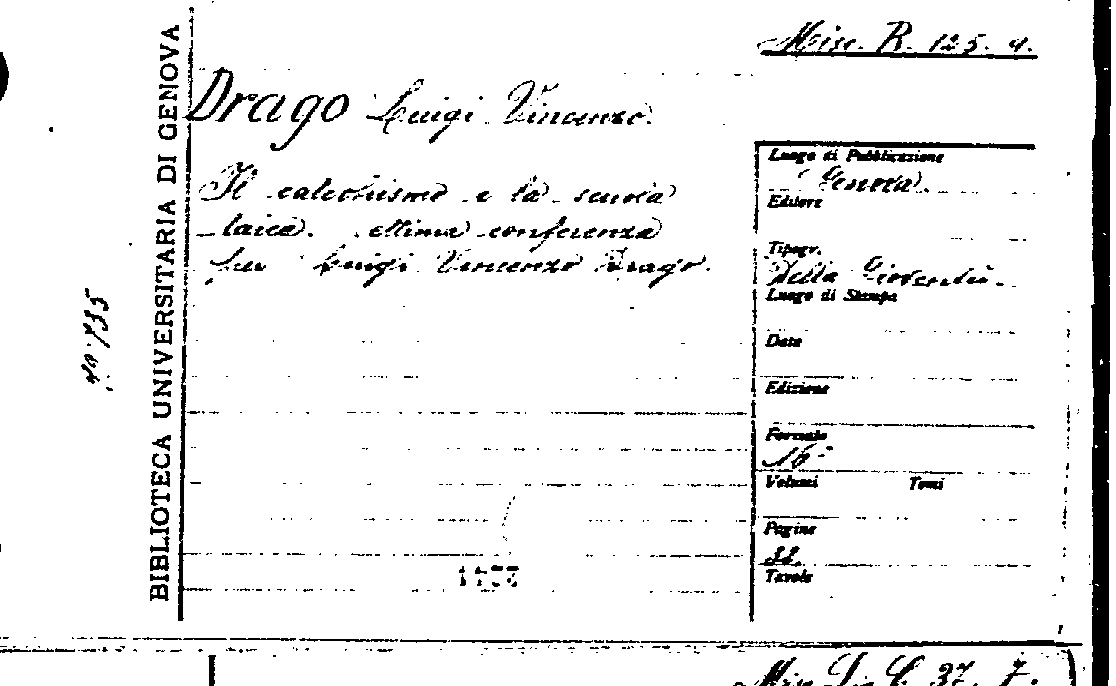 Misc. R. 125. 9.
BIBLIOTECA UNIVERSITARIA DI GENOVA
Drago Luigi Vincenzo.
Il catechismo e la scuola
laica. ottima conferenza
per Luigi Vincenzo Drago.
Luogo di Pubblicazione
Genova.
Editore
Tipogr.
Della Gioventù.
Luogo di Stampa
Data
Edizione
Formato
16°
Volumi Tomi
Pagine
Tavole
735
37. 7.